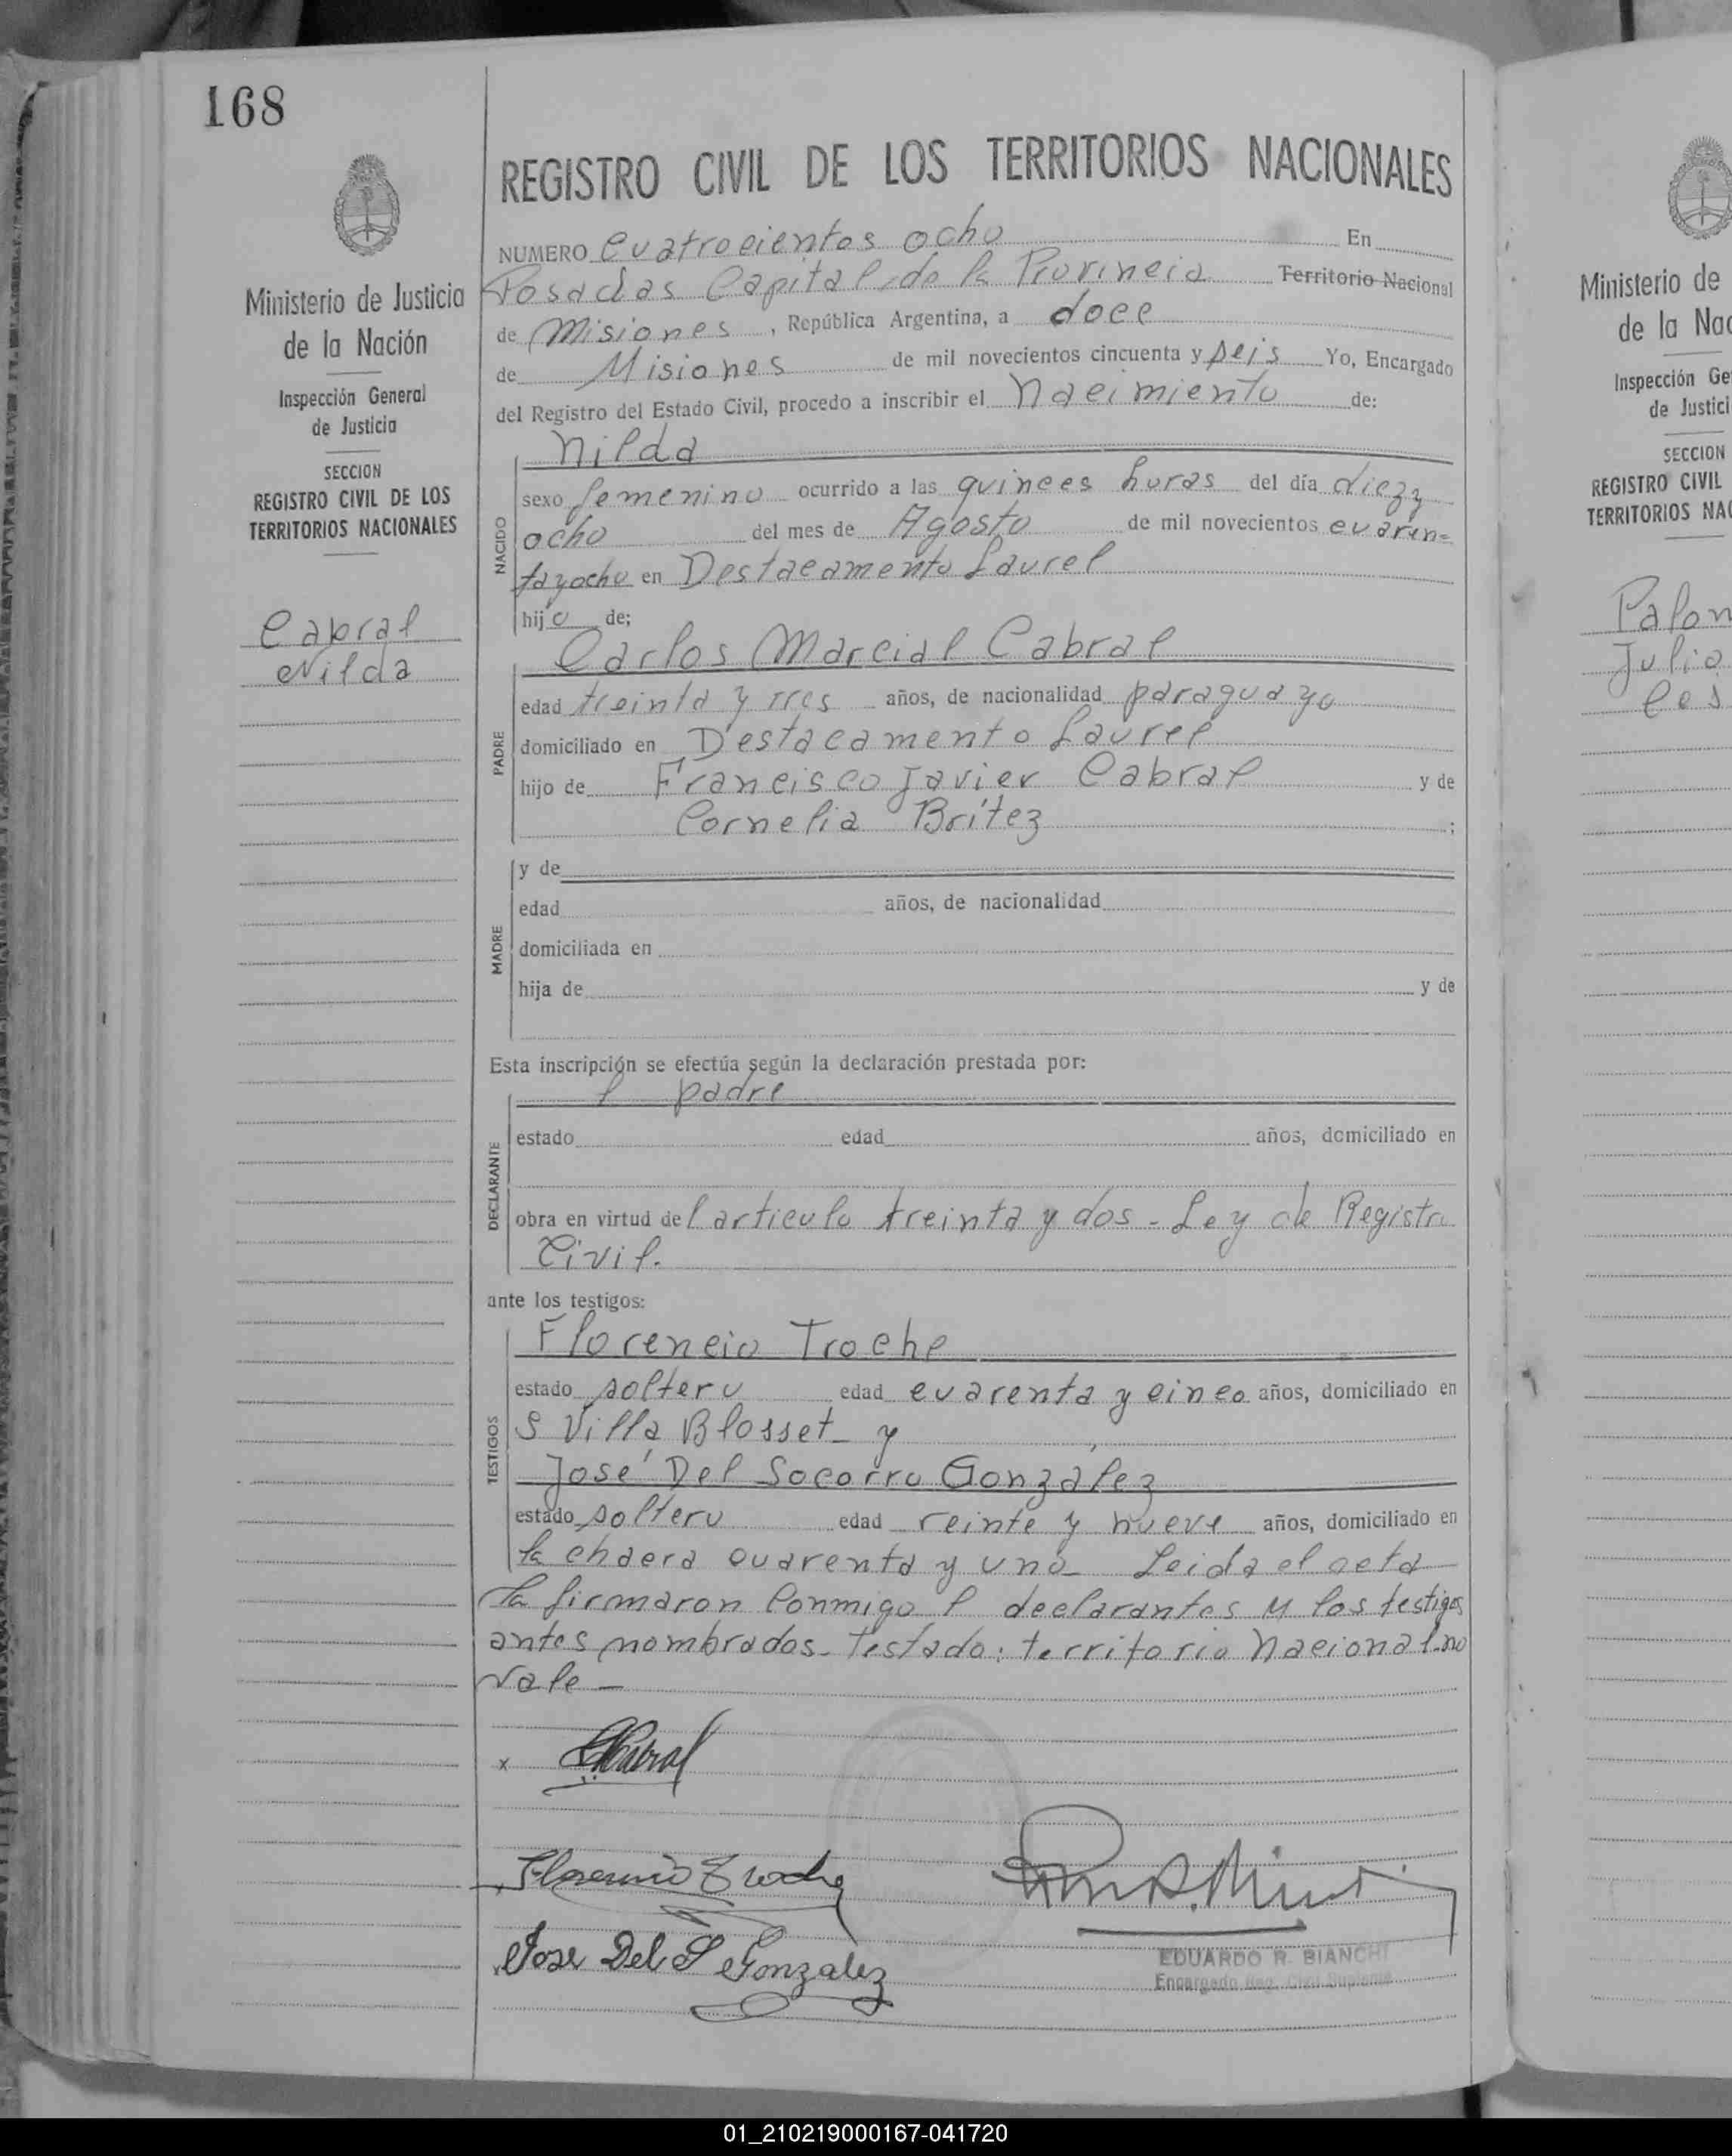 168
REGISTRO CIVIL DE LOS TERRITORIOS NACIONALES
Ministerio de Justicia
de la Nación
Inspección General
de Justicia
SECCION
REGISTRO CIVIL DE LOS
TERRITORIOS NACIONALES
Cabral
Nilda
NUMERO Cuatrocientos ocho En
Posadas Capital de la Provincia Territorio Nacional
de Misiones, República Argentina, a doce
de Misiones de mil novecientos cincuenta y seis Yo, Encargado
del Registro del Estado Civil, procedo a inscribir el Nacimiento de:
NACIDO
Nilda
sexo femenino ocurrido a las quinces horas del día diez y
ocho del mes de Agosto de mil novecientos cuaren=
tayocho en Destacamento Laurel
hijo de;
PADRE
Carlos Marcial Cabral
edad treinta y tres años, de nacionalidad paraguayo
domiciliado en Destacamento Laurel
hijo de Francisco Javier Cabral y de
Cornelia Brítez ;
MADRE
y de
edad años, de nacionalidad
domiciliada en
hija de y de
Esta inscripción se efectúa según la declaración prestada por:
DECLARANTE
l padre
estado edad años, domiciliado en
obra en virtud del articulo treinta y dos - Ley de Registro
Civil.
ante los testigos:
TESTIGOS
Florencio Troche
estado soltero edad cuarenta y cinco años, domiciliado en
S Villa Blosset - y
José Del Socorro González
estado soltero edad veinte y nueve años, domiciliado en
la chacra cuarenta y uno - Leida el acta
la firmaron conmigo l declarantes y los testigos
antes nombrados - Testado: territorio Nacional - no
vale -
x Cabral
Florencio Troche
Jose Del S Gonzalez
EDUARDO R. BIANCHI
Encargado Reg. Civil Suplente
Ministerio de
de la Nac
Inspección Ge
de Justici
SECCION
REGISTRO CIVIL
TERRITORIOS NAC
Palom
Julio
Ces
01_210219000167-041720